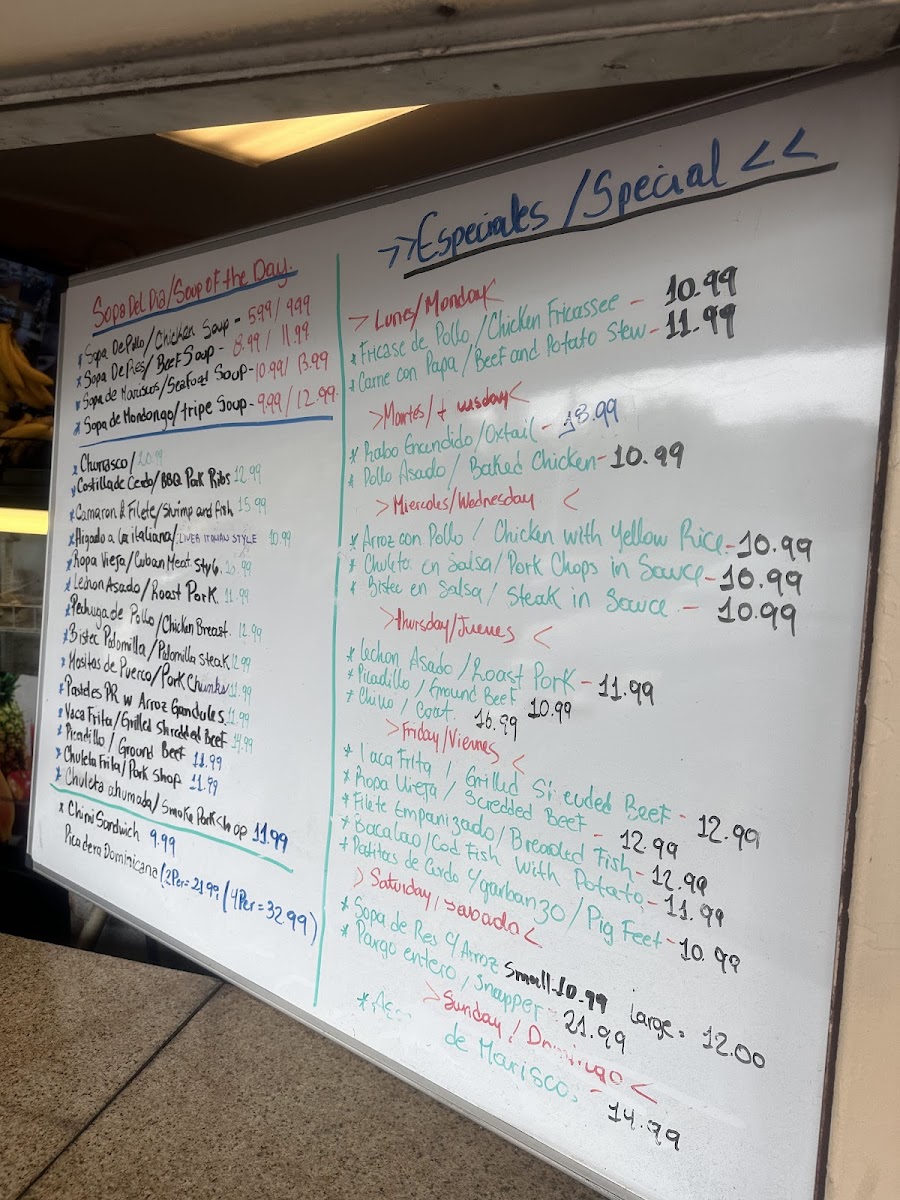 Sopa Del Dia/Soup of the Day.
* Sopa De Pollo/Chicken Soup - 5.99/ 9.99
* Sopa De Res/ Beef Soup - 8.99/ 11.99
* Sopa de Mariscos/Seafood Soup-10.99/ 13.99
* Sopa de Mondongo/tripe Soup-9.99/12.99
* Churrasco/ 20.99
* Costilla de Cerdo/BBQ Pork Ribs 12.99
* Camaron & Filete/Shrimp and Fish 15.99
* Higado a la italiana/LIVER ITALIAN STYLE 10.99
* Ropa Vieja/Cuban Meat Style
* Lechon Asado/Roast Pork. 11.99
* Pechuga de Pollo/Chicken Breast. 12.99
* Bistec Palomilla/Palomilla Steak 12.99
* Masitas de Puerco/Pork Chunks 11.99
* Pasteles PR w Arroz Gandules 11.99
* Vaca Frita/Grilled Shredded Beef 14.99
* Picadillo/ Ground Beef 11.99
* Chuleta Frita/Pork Shop 11.99
* Chuleta ahumada/Smoke Pork shop 11.99
* Chimi Sandwich 9.99
Picadera Dominicana (2Per=21.99/4Per=32.99)
>>Especiales/Special<<
> Lunes/Monday<
* Fricase de Pollo/Chicken Fricassee - 10.99
* Carne con Papa/Beef and Potato Stew- 11.99
>Martes/tuesday<
* Rabo Encendido/Oxtail - 18.99
* Pollo Asado/ Baked Chicken-10.99
>Miercoles/Wednesday <
* Arroz con Pollo / Chicken with Yellow Rice-10.99
* Chuleta en Salsa/Pork Chops in Sauce-10.99
* Bistec en Salsa/ Steak in Sauce.- 10.99
>thursday/Jueves <
* Lechon Asado/Roast Pork-11.99
* Picadillo/Ground Beef 10.99
* Chivo/ Goat. 16.99
>Friday/Viernes <
* Vaca Frita / Grilled Shredded Beef - 12.99
* Ropa Vieja/ Scredded Beef - 12.99
* Filete Empanizado/Breaded Fish-12.99
* Bacalao/Cod Fish With Potato-11.99
* Patitas de Cerdo c/garbanzo/Pig Feet-10.99
> Saturday/sabado<
* Sopa de Res c/Arroz Small-10.99 large= 12.00
* Pargo entero/Snapper 21.99
>Sunday/Domingo<
* de Mariscos - 14.99